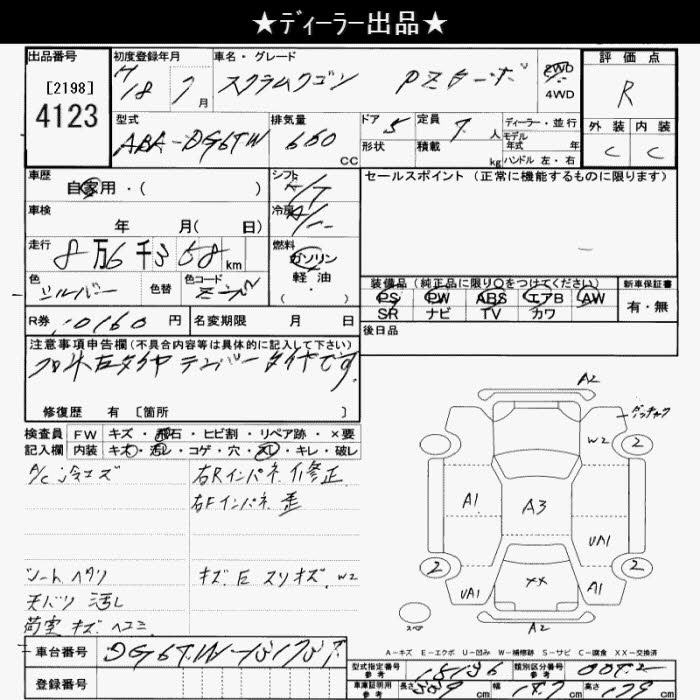 ★ディーラー出品★
出品番号 初度登録年月 車名・グレード 評価点
[2198] H 18 7月 スクラムワゴン PZターボ 2WD 4WD R
4123
型式 排気量 ドア 定員 ディーラー・並行 外装 内装
ABA-DG6TW 660 CC 5 人 モデル年式 年 C C
形状 積載 kg ハンドル 左・右
車歴 シフト セールスポイント(正常に機能するものに限ります)
自家用・( )
車検 年 月( 日) 冷房
走行 8万6千358km 燃料 ガソリン 軽油 ( )
色 シルバー 色替 色コード Z2
装備品(純正品に限り○をつけてください) 新車保証書
PS PW ABS エアB AW 有・無
SR ナビ TV カワ
R券 10160円 名変期限 月 日 後日品
注意事項申告欄(不具合内容等は具体的に記入して下さい)
テンパータイヤです
修復歴 有 [箇所 ]
検査員 FW キズ・飛石・ヒビ割・リペア跡・×要
記入欄 内装 キズ・汚レ・コゲ・穴・スレ・キレ・破レ
A/C 冷エズ 右Rインパネ 修正
右Fインパネ 歪
シートヘタリ キズ E スリキズ W2
天バリ 汚レ
荷室 キズ ヘコミ
A2
W2 2
A1 A3
UA1
2 2
UA1 XX A1
スペア A2
A-キズ E-エクボ U-凹み W-補修跡 S-サビ C-腐食 XX-交換済
車台番号 DG6TW-
型式指定番号 参考 15136 類別区分番号 参考
登録番号 車庫証明用 参考 長さ 339cm 幅 147cm 高さ 179cm